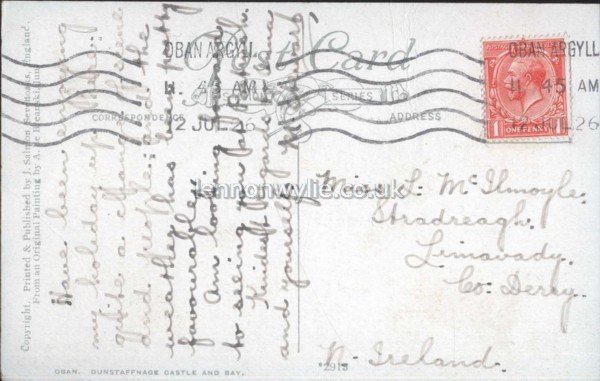 Post Card
OBAN ARGYLL
11. 45 AM
12 JUL 26
OBAN ARGYLL
11. 45 AM
12 JUL 26
1 ONE PENNY 1
CORRESPONDENCE
SERIES
ADDRESS
Have been enjoying
my holiday up here;
quite a change of scene
and people; and the
weather has been pretty
favourable.
Am looking forward
to seeing you
Kindest regards
and yourself
Miss L. McIlmoyle.
Stradreagh.
Limavady.
Co. Derry.
N. Ireland.
Copyright. Printed & Published by J. Salmon, Sevenoaks, England.
From an Original Painting by A. de Breanski, Jun.
OBAN. DUNSTAFFNAGE CASTLE AND BAY.
*2913
lennonwylie.co.uk